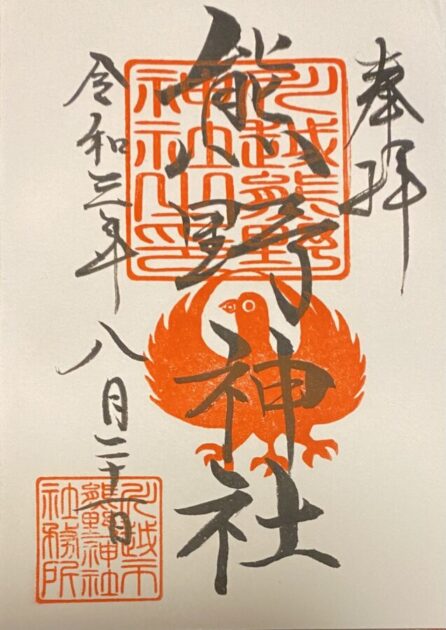 奉拝
川越熊野
神社之印
熊野神社
令和三年
八月二十一日
川越市
熊野神社
社務所